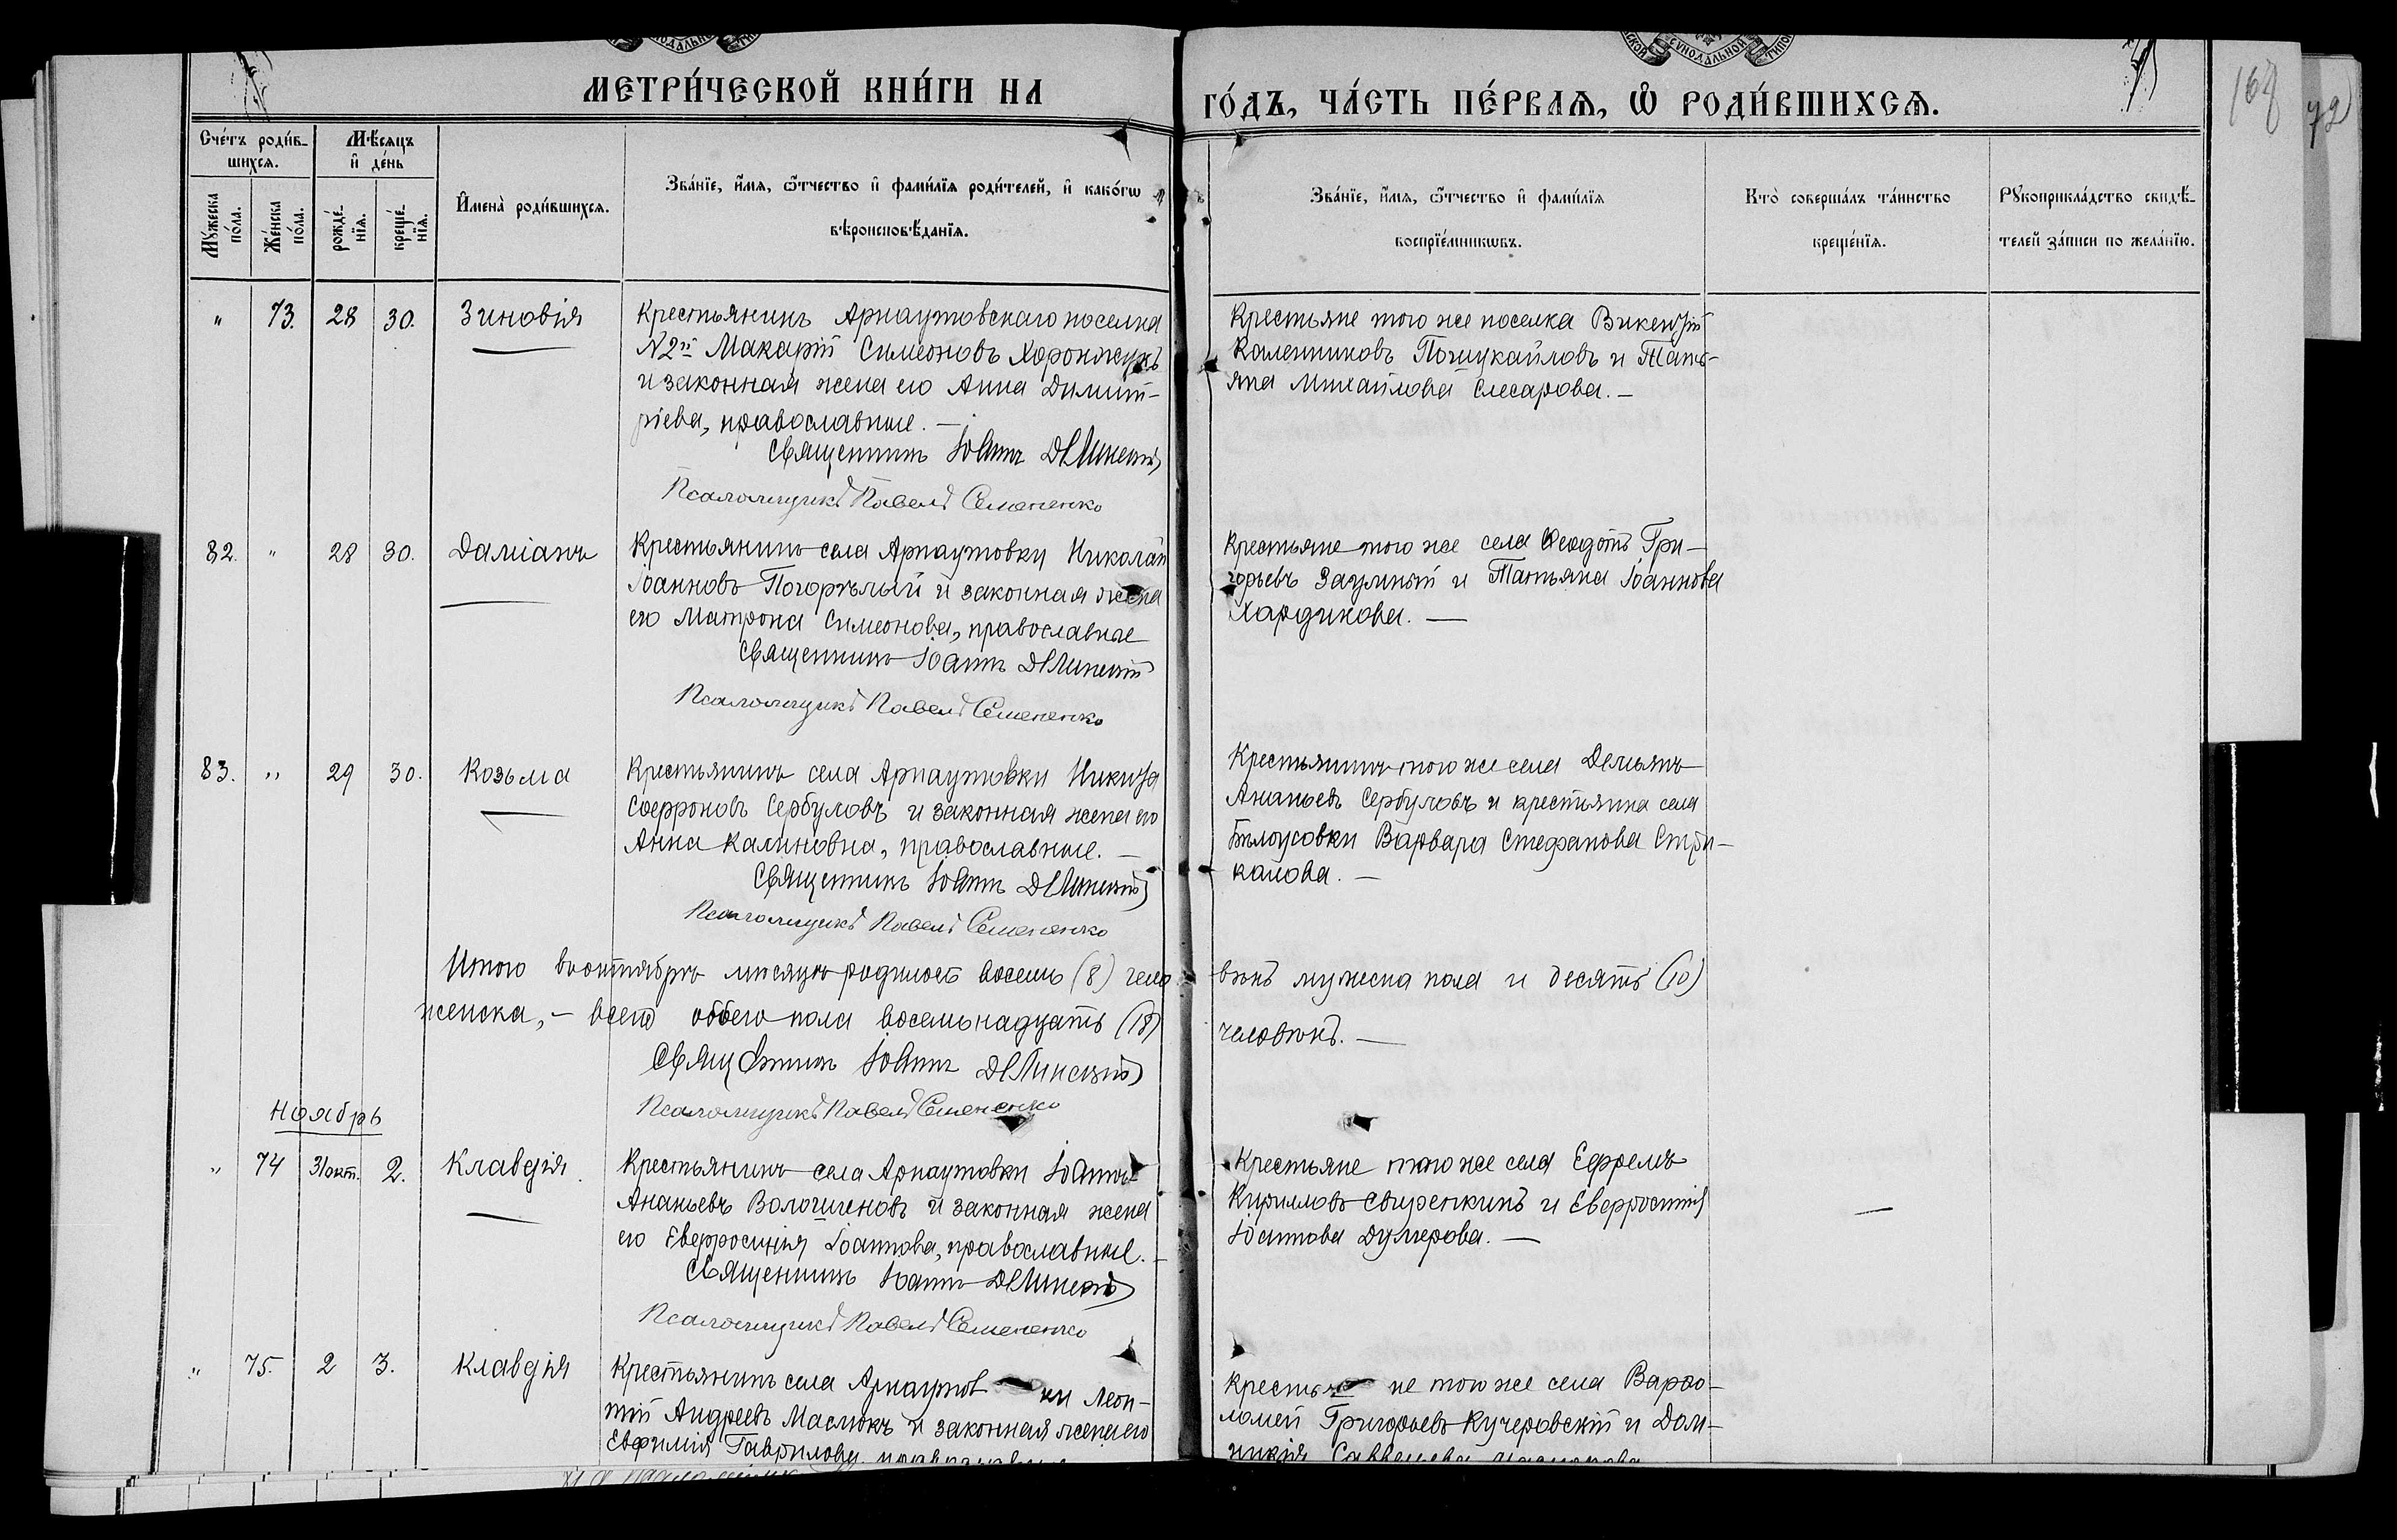 МЕТРИ́ЧЕСКОЙ КНИ́ГИ НА ГО́ДЪ, ЧА́СТЬ ПЕ́РВАѦ, Ѡ҆ РОДИ́ВШИХСѦ.
Сче́тъ роди́в-
шихсѧ.
Мꙋ́жеска по́ла.
Же́нска по́ла.
Мѣ́сѧцъ
и҆ де́нь
рожде́-
нїѧ.
креще́-
нїѧ.
И҆мена̀ роди́вшихсѧ.
Зва́нїе, и҆́мѧ, ѻ҆́тчество и҆ фами́лїѧ роди́телей, и҆ како́гѡ
вѣроисповѣ́данїѧ.
Зва́нїе, и҆́мѧ, ѻ҆́тчество и҆ фами́лїѧ
воспрїе́мникѡвъ.
Кто̀ соверша́лъ та́инство
креще́нїѧ.
Рꙋкоприкла́дство свидѣ́-
телей за́писи по жела́нїю.
168
72
" 73. 28 30. Зиновія
Крестьянинъ Арнаутовскаго поселка
N2й Макарій Симеоновъ Хоронжукъ
и законная жена его Анна Димит-
ріева, православные. —
Священникъ Іоаннъ
Псаломщикъ Павелъ Семененко
Крестьяне того же поселка Викентій
Каленниковъ и Тать-
яна Михайлова Слесарова. —
82. " 28 30. Даміанъ
Крестьянинъ села Арнаутовки Николай
Іоанновъ Погорѣлый и законная жена
его Матрона Симеонова, православные
Священникъ Іоаннъ
Псаломщикъ Павелъ Семененко
Крестьяне того же села Ѳеодотъ Гри-
горьевъ Заумный и Татьяна Іоаннова
Хардикова. —
83. " 29 30. Козьма
Крестьянинъ села Арнаутовки Никита
Софроновъ Сербуловъ и законная жена его
Анна Калиновна, православные. —
Священникъ Іоаннъ
Псаломщикъ Павелъ Семененко
Крестьянинъ того же села Демьянъ
Ананьевъ Сербуловъ и крестьянка села
Бѣлоусовки Варвара Стефанова Стри-
калова. —
Итого въ октябрѣ мѣсяцѣ родилось восемь (8) чело-
вѣкъ мужеска пола и десять (10)
женска, — всего обоего пола восемьнадцать (18)
человѣкъ. —
Священникъ Іоаннъ
Псаломщикъ Павелъ Семененко
Ноябрь
" 74 31 окт. 2. Клавдія.
Крестьянинъ села Арнаутовки Іоаннъ
Ананьевъ Волошеновъ и законная жена
его Евфросинія Іоаннова, православные. —
Священникъ Іоаннъ
Псаломщикъ Павелъ Семененко
Крестьяне того же села Ефремъ
Кирилловъ Свиренкинъ и Евфросинія
Іоаннова Думерова. —
—
" 75. 2 3. Клавдія
Крестьянинъ села Арнаутовки Леон-
тій Андреевъ Маслюкъ и законная жена его
Евфимія Гаврилова, православные
Крестьяне того же села Варфо-
ломей Григорьевъ Кучеровскій и Дом-
никія Савельева